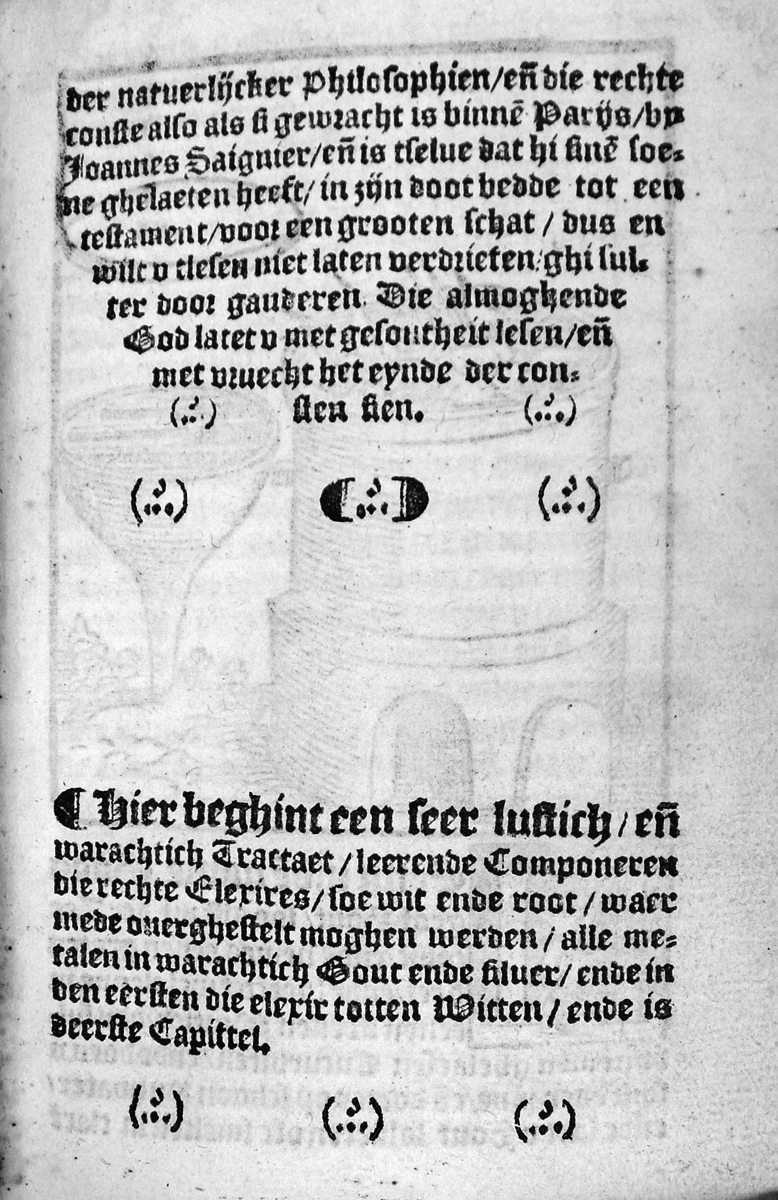 der natuerlijcker Philosophien/en̄ die rechte
conste also als si gewracht is binnē Parijs/by
Joannes Saignier/en̄ is tselue dat hi sinē soe-
ne ghelaeten heeft/ in zijn doot bedde tot een
testament/voor een grooten schat / dus en
wilt v tlesen niet laten verdrieten/ghi sul-
ter door gauderen. Die almoghende
God latet v met gesontheit lesen/en̄
met vruecht het eynde der con-
sten sien.
¶ Hier beghint een seer lustich/en̄
warachtich Tractaet/leerende Componeren
die rechte Elexires/soe wit ende root/waer
mede ouerghestelt moghen werden/alle me-
talen in warachtich Gout ende siluer/ende in
den eersten die elexir totten Witten/ende is
deerste Capittel.